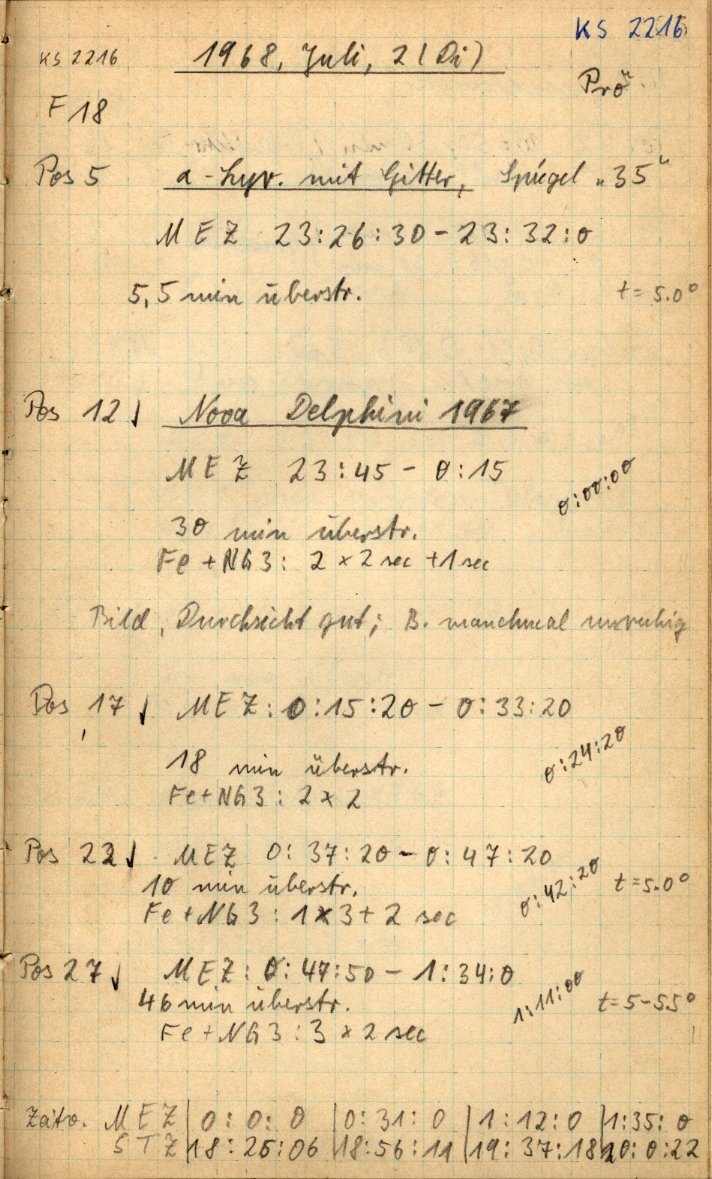 KS 2216
KS 2216 1968, Juli, 2 (Di)
Prö
F 18
Pos 5 α-Lyr. mit Gitter, Spiegel „35“
MEZ 23:26:30 - 23:32:0
5,5 min überstr. t = 5.0°
Pos 12 ↓ Nova Delphini 1967
MEZ 23:45 - 0:15
0:00:00
30 min überstr.
Fe + NG3: 2 × 2 sec + 1 sec
Bild, Durchsicht gut; B. manchmal unruhig
Pos 17 ↓ MEZ: 0:15:20 - 0:33:20
18 min überstr. 0:24:20
Fe + NG3: 2 × 2
Pos 22 ↓ MEZ 0:37:20 - 0:47:20
10 min überstr. 0:42:20 t = 5.0°
Fe + NG3: 1 × 3 + 2 sec
Pos 27 ↓ MEZ: 0:47:50 - 1:34:0
46 min überstr. 1:11:00 t = 5-5.5°
Fe + NG3: 3 × 2 sec
MEZ | 0:0:0 | 0:31:0 | 1:12:0 | 1:35:0
STZ | 18:25:06 | 18:56:11 | 19:37:18 | 20:0:22